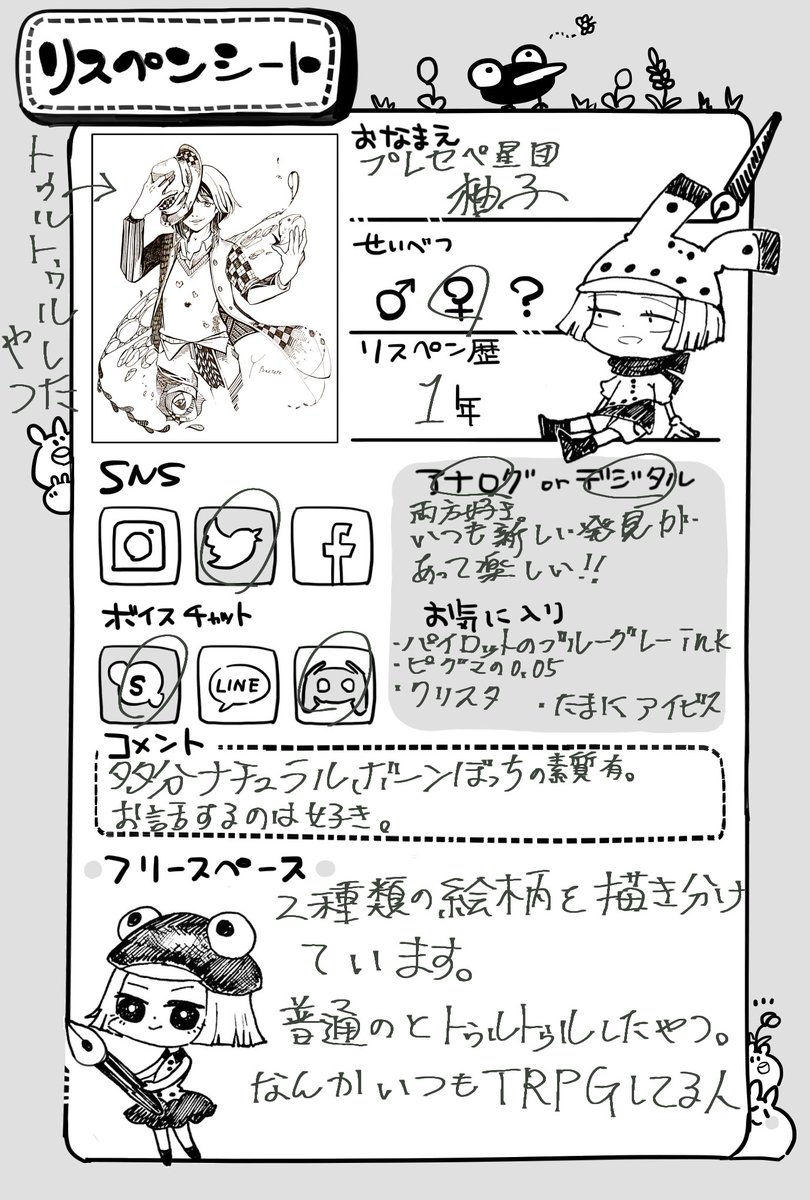 リスペンシート
トゥルトゥルした
やつ
おなまえ
プレセペ星団
柚子
せいべつ
♂ ♀ ?
リスペン歴
1年
SNS
ボイスチャット
S
LINE
アナログ or デジタル
両方好き
いつも新しい発見が
あって楽しい!!
お気に入り
・パイロットのブルーグレーink
・ピグマの0.05
・クリスタ ・たまにアイビス
コメント
多分ナチュラルボーンぼっちの素質有。
お話するのは好き。
フリースペース
2種類の絵柄を描き分け
ています。
普通のとトゥルトゥルしたやつ。
なんかいつもTRPGしてる人